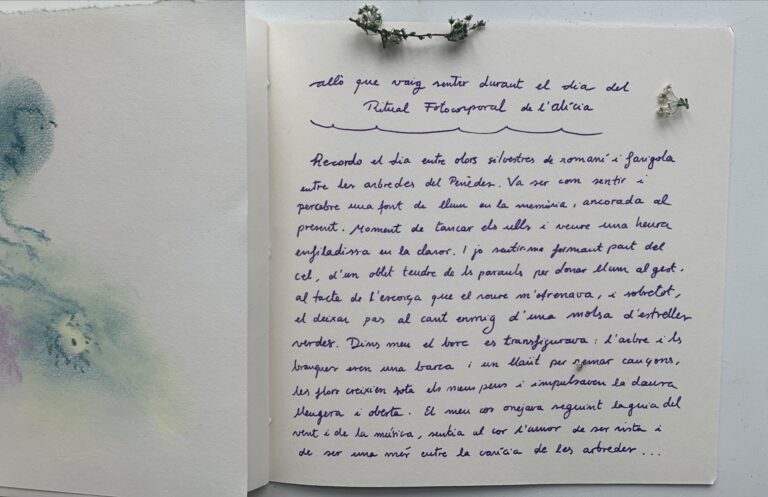 allò que vaig sentir durant el dia del
Ritual Fotocorporal de l'alícia
Recordo el dia entre olors silvestres de romaní i farigola
entre les arbredes del Penedes. Va ser com sentir i
percebre una font de llum en la memòria, ancorada al
present. Moment de tancar els ulls i veure una heura
enfiladissa en la claror. I jo sentir-me formant part del
cel, d'un oblit tendre de les paraules per donar llum al gest.
al tacte de l'escorça que el roure m'ofrenava, i sobretot,
el deixar pas al cant enmig d'una molsa d'estrelles
verdes. Dins meu el bosc es transfigurava: l'arbre i les
branques eren una barca i un llaüt per remar cançons,
les flors creixien sota els meus peus i impulsaven la dansa
lleugera i oberta. El meu cos onejava seguint la guia del
vent i de la música, sentia al cor l'amor de ser vista i
de ser una més entre la carícia de les arbredes...